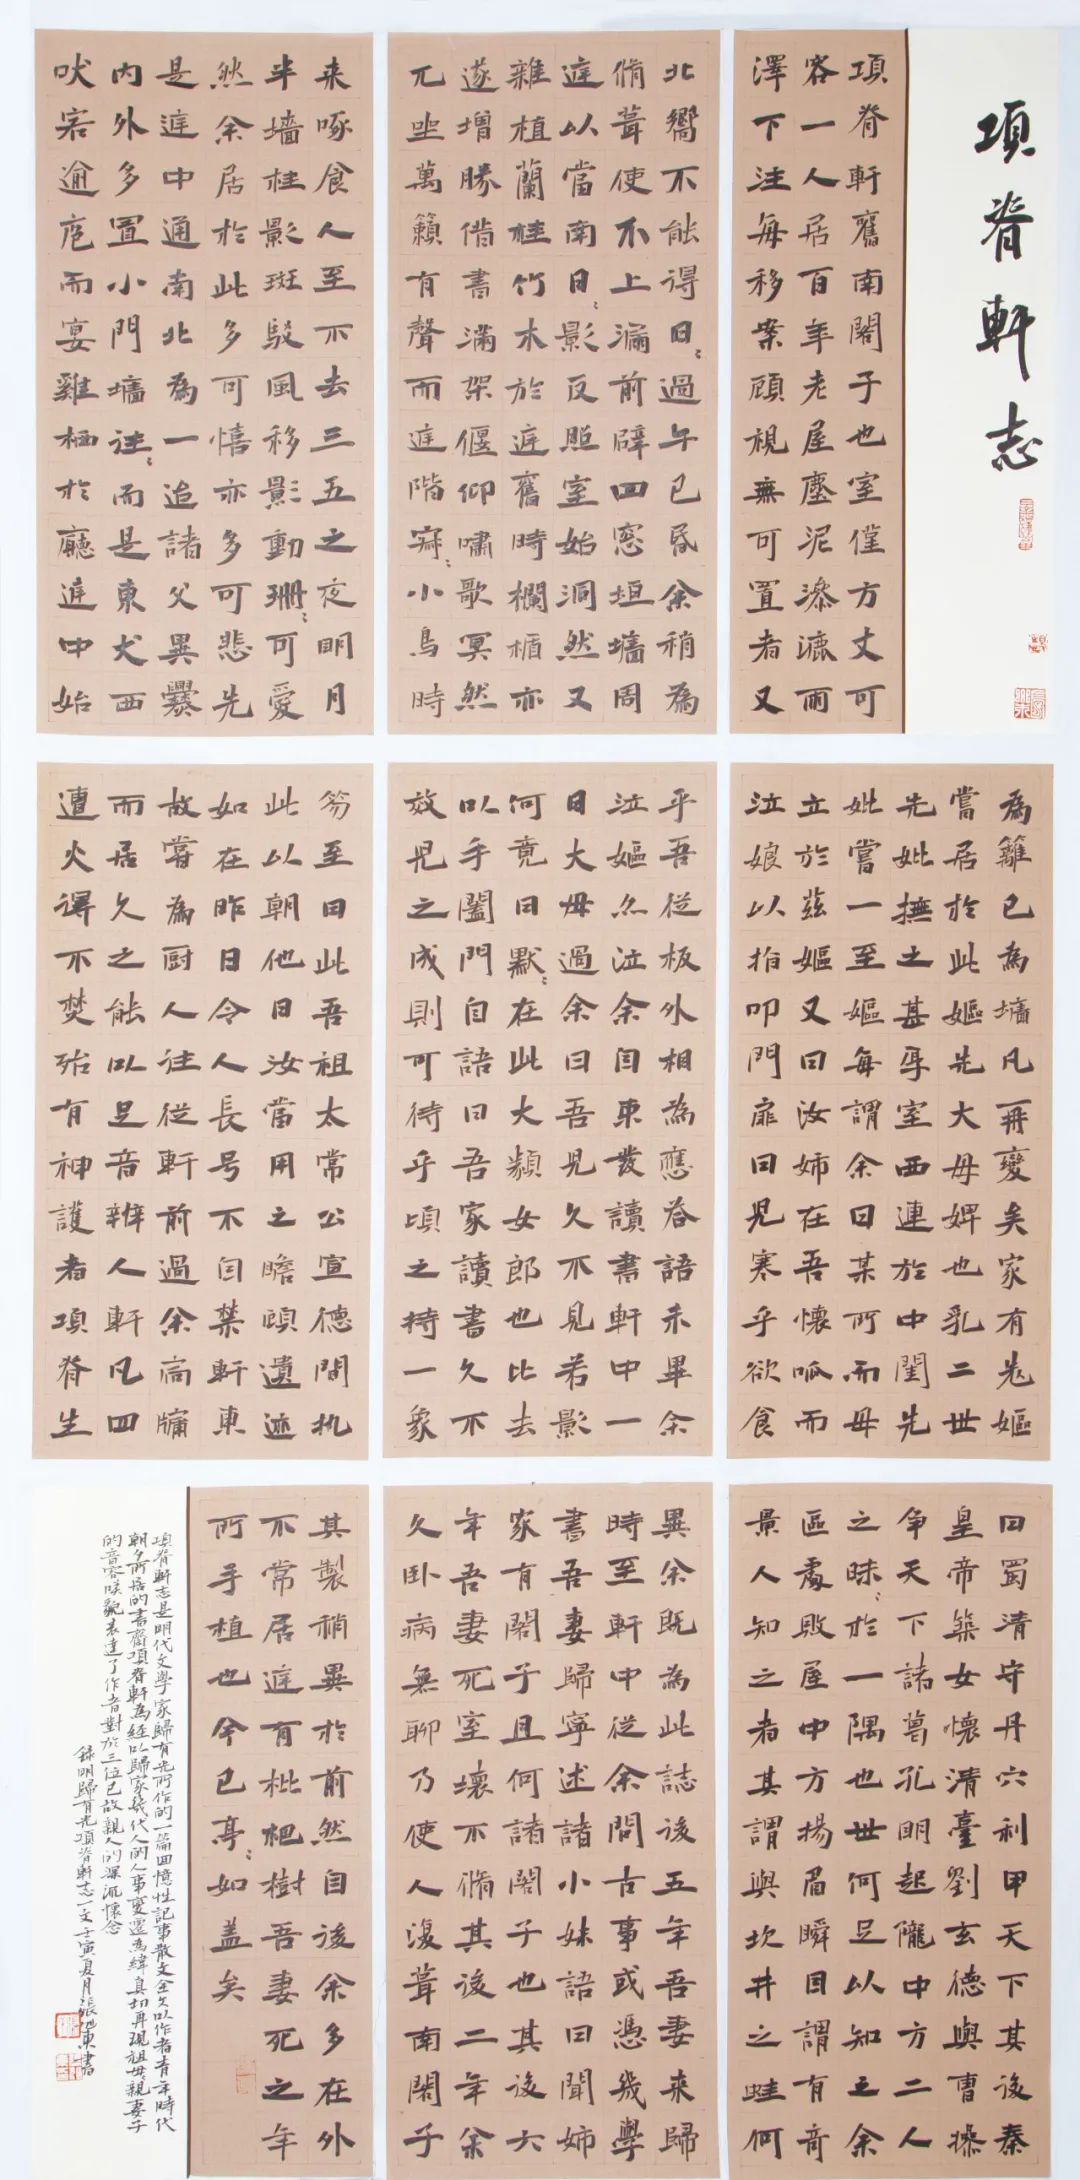 項脊軒志
項脊軒舊南閣子也室僅方丈可
容一人居百年老屋塵泥滲漉雨
澤下注每移案顧視無可置者又
北嚮不能得日〻過午已昏余稍為
脩葺使不上漏前辟四窓垣墻周
庭以當南日〻影反照室始洞然又
雜植蘭桂竹木於庭舊時欄楯亦
遂增勝借書滿架偃仰嘯歌冥然
兀坐萬籟有聲而庭階寂〻小鳥時
来啄食人至不去三五之夜明月
半墻桂影斑駁風移影動珊〻可愛
然余居於此多可憘亦多可悲先
是庭中通南北為一迨諸父異爨
内外多置小門墻往〻而是東犬西
吠客逾庖而宴雞栖於廳庭中始
為籬已為墻凡再變矣家有老嫗
嘗居於此嫗先大母婢也乳二世
先妣撫之甚厚室西連於中閨先
妣嘗一至嫗每謂余曰某所而母
立於茲嫗又曰汝姊在吾懷呱而
泣娘以指叩門扉曰兒寒乎欲食
乎吾從板外相為應答語未畢余
泣嫗亦泣余自束髮讀書軒中一
日大母過余曰吾兒久不見若影
何竟日默〻在此大類女郎也比去
以手闔門自語曰吾家讀書久不
效兒之成則可待乎頃之持一象
笏至曰此吾祖太常公宣德間執
此以朝他日汝當用之瞻顧遺迹
如在昨日令人長号不自禁軒東
故嘗為廚人往從軒前過余扃牖
而居久之能以足音辨人軒凡四
遭火得不焚殆有神護者項脊生
曰蜀清守丹穴利甲天下其後秦
皇帝築女懷清臺劉玄德與曹操
争天下諸葛孔明起隴中方二人
之昧〻於一隅也世何足以知之余
區處敗屋中方揚眉瞬目謂有奇
景人知之者其謂與坎井之蛙何
異余既為此誌後五年吾妻来歸
時至軒中從余問古事或憑幾學
書吾妻歸寧述諸小妹語曰聞姊
家有閣子且何諸閣子也其後六
年吾妻死室壞不脩其後二年余
久卧病無聊乃使人復葺南閣子
其製稍異於前然自後余多在外
不常居庭有枇杷樹吾妻死之年
所手植也今已亭〻如盖矣
項脊軒志是明代文學家歸有光所作的一篇回憶性記事散文全文以作者青年時代
朝夕所居的書齋項脊軒為經以歸家幾代人的人事變遷為緯真切再現祖母親妻子
的音容咲貌表達了作者對於三位已故親人的深沉懷念
錄明歸有光項脊軒志一文壬寅夏月張東書